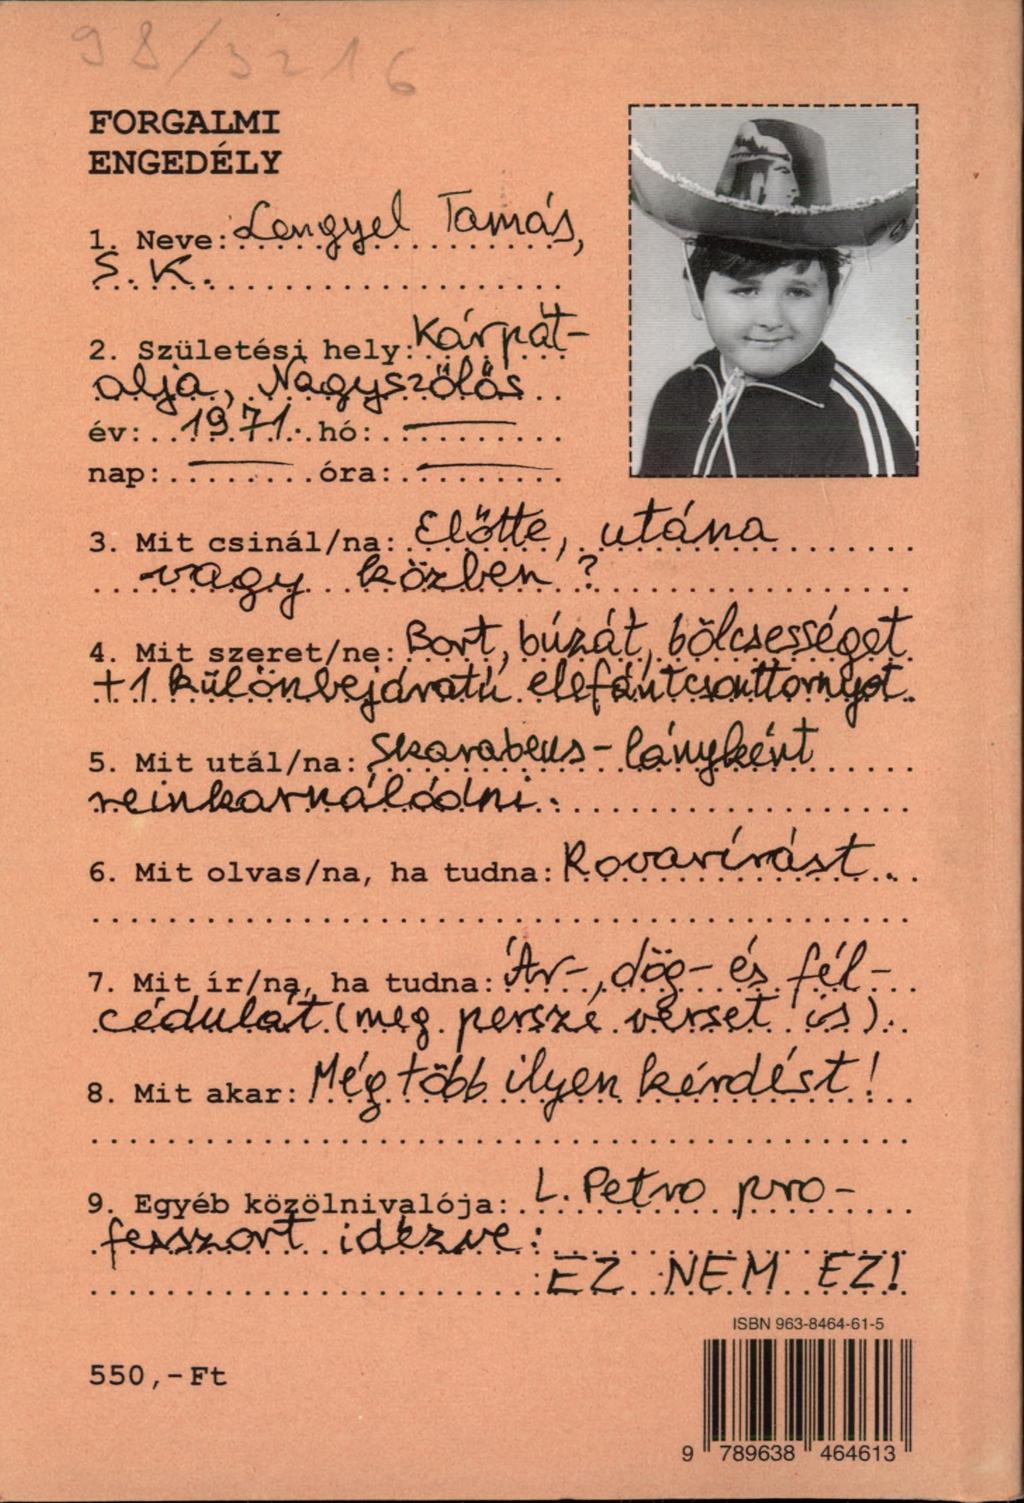 98/3216
FORGALMI
ENGEDÉLY
1. Neve: Lengyel Tamás,
S. K.
2. Születési hely: Kárpát-
alja, Nagyszőlős
év: 1971. hó: —
nap: — óra: —
3. Mit csinál/na: Előtte, utána
vagy közben?
4. Mit szeret/ne: Bort, búzát, bölcsességet
+1 különbejáratú elefántcsonttornyot.
5. Mit utál/na: Skarabeus-lányként
reinkarnálódni.
6. Mit olvas/na, ha tudna: Rovarírást.
7. Mit ír/na, ha tudna: Ár-, dög- és fél-
cédulát (meg persze verset is).
8. Mit akar: Még több ilyen kérdést!
9. Egyéb közölnivalója: L. Petro pro-
fesszort idézve:
EZ NEM EZ!
ISBN 963-8464-61-5
550,-Ft
9 789638 464613